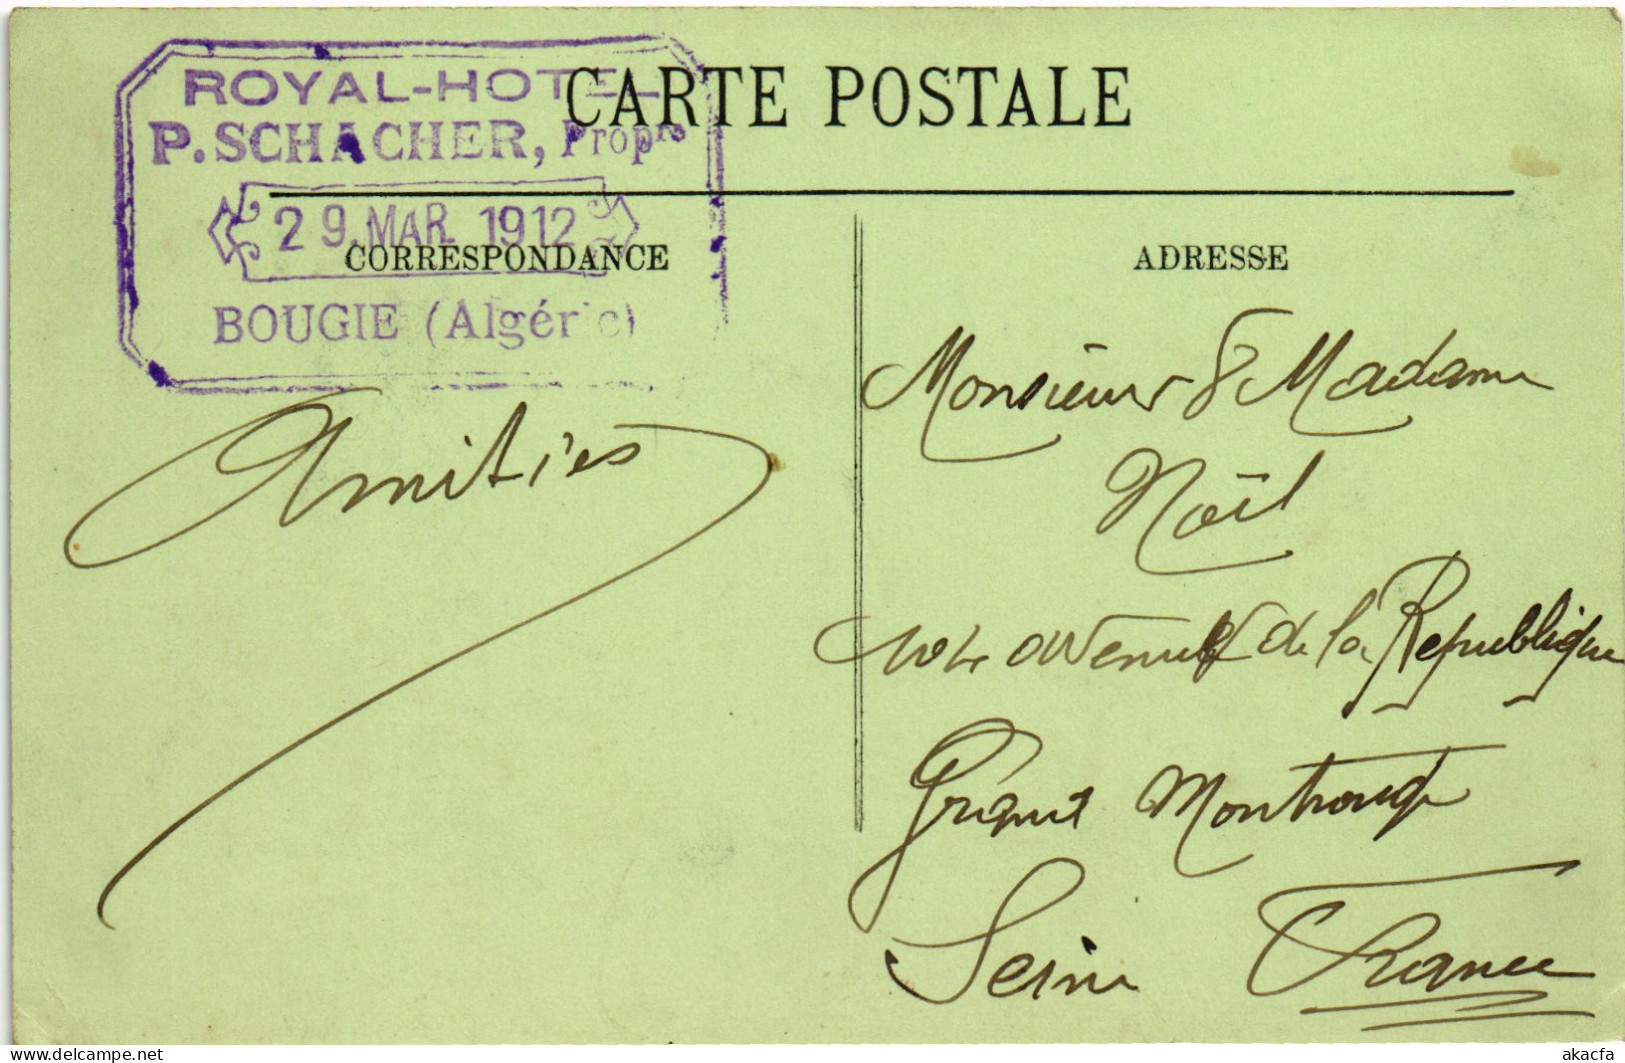 ROYAL-HOTEL
CARTE POSTALE
P. SCHACHER, Propre
29. MAR. 1912
CORRESPONDANCE
BOUGIE (Algérie)
Amitiés
ADRESSE
Monsieur & Madame
Noël
avenue de la Republique
Grand Montrouge
Seine France
delcampe.net
akacfa